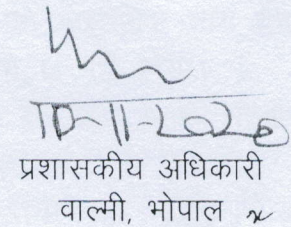 10-11-2020
प्रशासकीय अधिकारी
वाल्मी, भोपाल